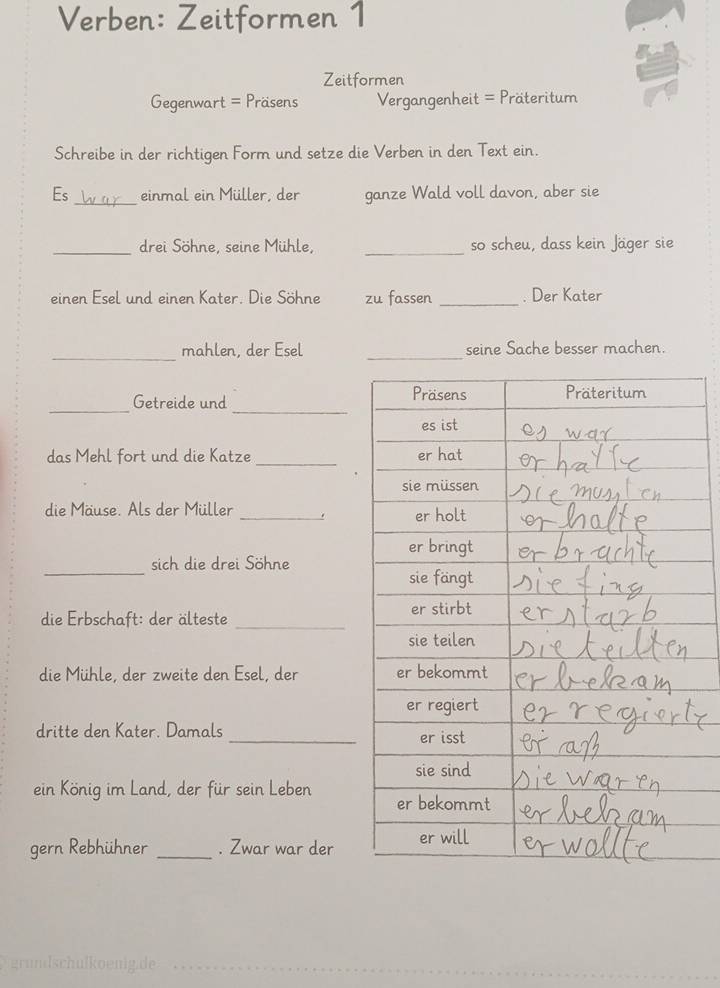 Verben: Zeitformen 1
Zeitformen
Gegenwart = Präsens Vergangenheit = Präteritum
Schreibe in der richtigen Form und setze die Verben in den Text ein.
Es war einmal ein Müller, der
_______ drei Söhne, seine Mühle,
einen Esel und einen Kater. Die Söhne
_______ mahlen, der Esel
_______ Getreide und _______
das Mehl fort und die Katze _______
die Mäuse. Als der Müller _______,
_______ sich die drei Söhne
die Erbschaft: der älteste _______
die Mühle, der zweite den Esel, der
dritte den Kater. Damals _______
ein König im Land, der für sein Leben
gern Rebhühner _______. Zwar war der
ganze Wald voll davon, aber sie
_______ so scheu, dass kein Jäger sie
zu fassen _______. Der Kater
_______ seine Sache besser machen.
Präsens Präteritum
es ist es war
er hat er hatte
sie müssen sie mussten
er holt er holte
er bringt er brachte
sie fängt sie fing
er stirbt er starb
sie teilen sie teilten
er bekommt er bekam
er regiert er regierte
er isst er aß
sie sind sie waren
er bekommt er bekam
er will er wollte
grundschulkoenig.de